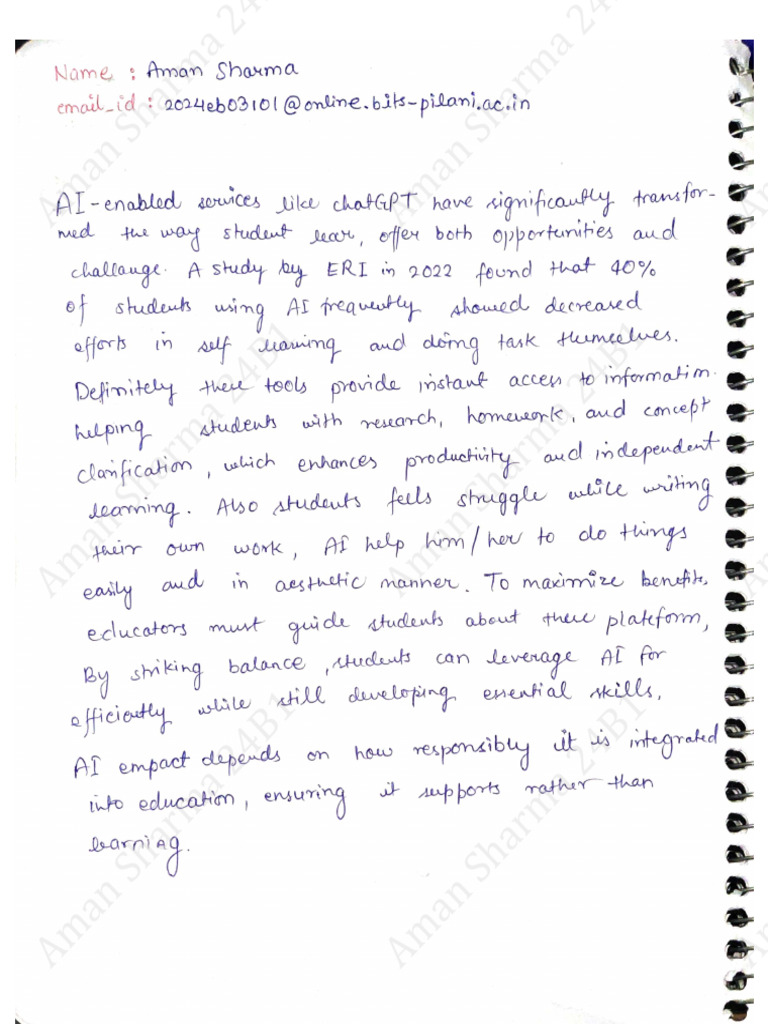 Name : Aman Sharma
email_id : 2024eb03101@online.bits-pilani.ac.in
AI-enabled services like chatGPT have significantly transfor-
med the way student lear, offer both opportunities and
challange. A study by ERI in 2022 found that 40%
of students using AI frequently showed decreased
efforts in self learning and doing task themselves.
Definitely these tools provide instant access to information.
helping students with research, homework, and concept
clarification, which enhances productivity and independent
learning. Also students feels struggle while writing
their own work, AI help him/her to do things
easily and in aesthetic manner. To maximize benefits,
educators must guide students about these plateform,
By striking balance, students can leverage AI for
efficiently while still developing essential skills.
AI empact depends on how responsibly it is integrated
into education, ensuring it supports rather than
learning.
Aman Sharma 24B1
Aman Sharma 24B1
Aman Sharma 24B1
Aman Sharma 24B1
Aman Sharma 24B1
Aman Sharma 24B1